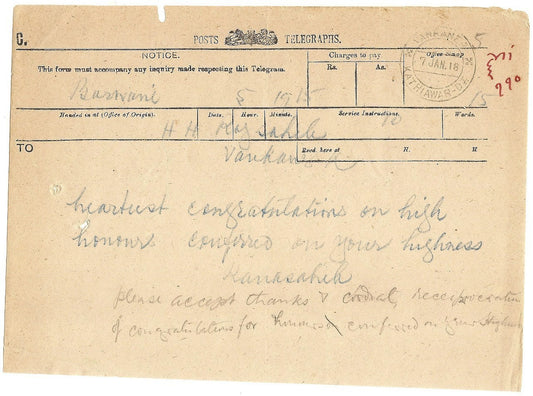 C. POSTS TELEGRAPHS. 5
NOTICE. Charges to pay. Office Stamp
This form must accompany any inquiry made respecting this Telegram. Rs. As. 7 JAN.18
Barwani 5 19 15 15
Handed in at (Office of Origin). Date. Hour. Minute. Service Instructions. Words.
H H Raj Saheb
TO Recd. here at H. M.
Vankaner
heartiest congratulations on high
honours conferred on your highness
Ranasaheb
please accept thanks & cordial reciprocation
of congratulations for honours conferred on your Highness